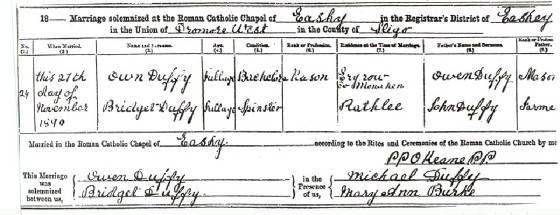 18— Marriage solemnized at the Roman Catholic Chapel of Easky in the Registrar's District of Easkey
in the Union of Dromore West in the County of Sligo
No. When Married. Name and Surname. Age. Condition. Rank or Profession. Residence at the Time of Marriage. Father's Name and Surname. Rank or Profession of Father.
(1.) (2.) (3.) (4.) (5.) (6.) (7.) (8.)
24 this 27th day of November Owen Duffy full age Bachelor Mason Co Monaghan Owen Duffy Mason
Bridget Duffy full age Spinster Rathlee John Duffy Farme
Married in the Roman Catholic Chapel of Easky according to the Rites and Ceremonies of the Roman Catholic Church by me
P P O Keane PP
This Marriage was solemnized between us, Owen Duffy Bridget Duffy in the Presence of us, Michael Duffy Mary Ann Burke